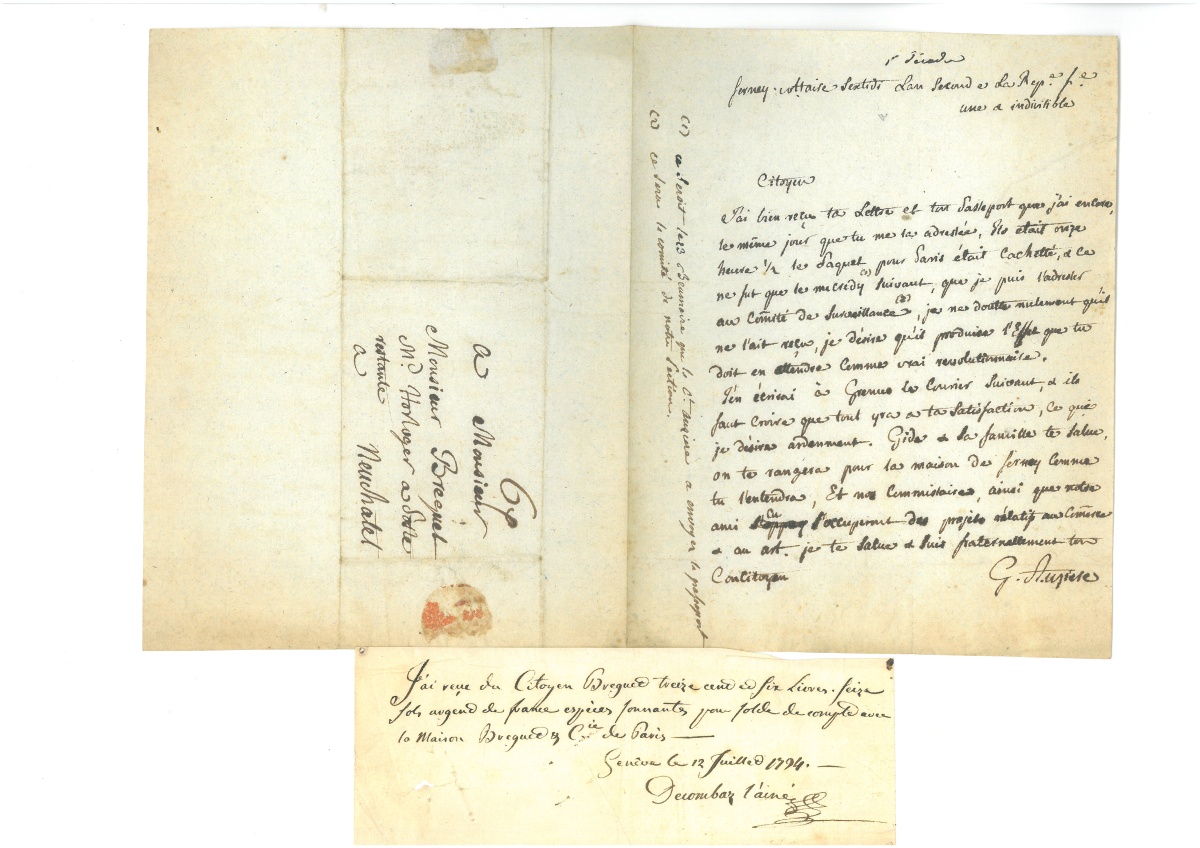 1e Décade
ferney-voltaire Sextidi Lan Second e La Rep.e f.e
une & indivisible
Citoyen
J'ai bien reçu ta Lettre et ton Passeport que j'ai encore,
le même jour que tu me la adressée, Ils était onze
heure 1/2 le Paquet pour Paris était Cachetté, & Ce
ne fut que le mecredy (1) Suivant, que je puis l'adresser
au Comité de Surveillance (2), je ne doute nulement qu'il
ne l'ait reçu, je désire qu'il produise l'Effet que tu
doit en attendre Comme vrai revolutionnaire.
J'en écrirai à Grenus le Courier Suivant, & ils
faut Croire que tout yra a ta Satisfaction, Ce que
je désire ardemment. Gide & Sa famille te Salue,
on te rangera pour la maison de ferney Comme
tu l'entendra, Et nos Commissaires, ainsi que notre
ami S'occuperont des projets rélatif au Comerce
& au art. je te Salue & Suis fraternellement ton
Concitoyen
G. Auziere
(1) ce Seroit le 23 Brumaire que le C.n Auziere a envoyer le passeport
(2) ce Sera le comité de notre Section.
6
a Monsieur
Monsieur Breguet
M.d Horloger a Poste
restante
a Neuchatel
J'ai reçu du Citoyen Breguet treize cent et Six Livres Seize
sols argend de france espèces sonnantes pour solde de compte avec
la Maison Breguet & C.ie de Paris —
Genêve le 12 Juillet 1794. —
Decombaz l'ainé